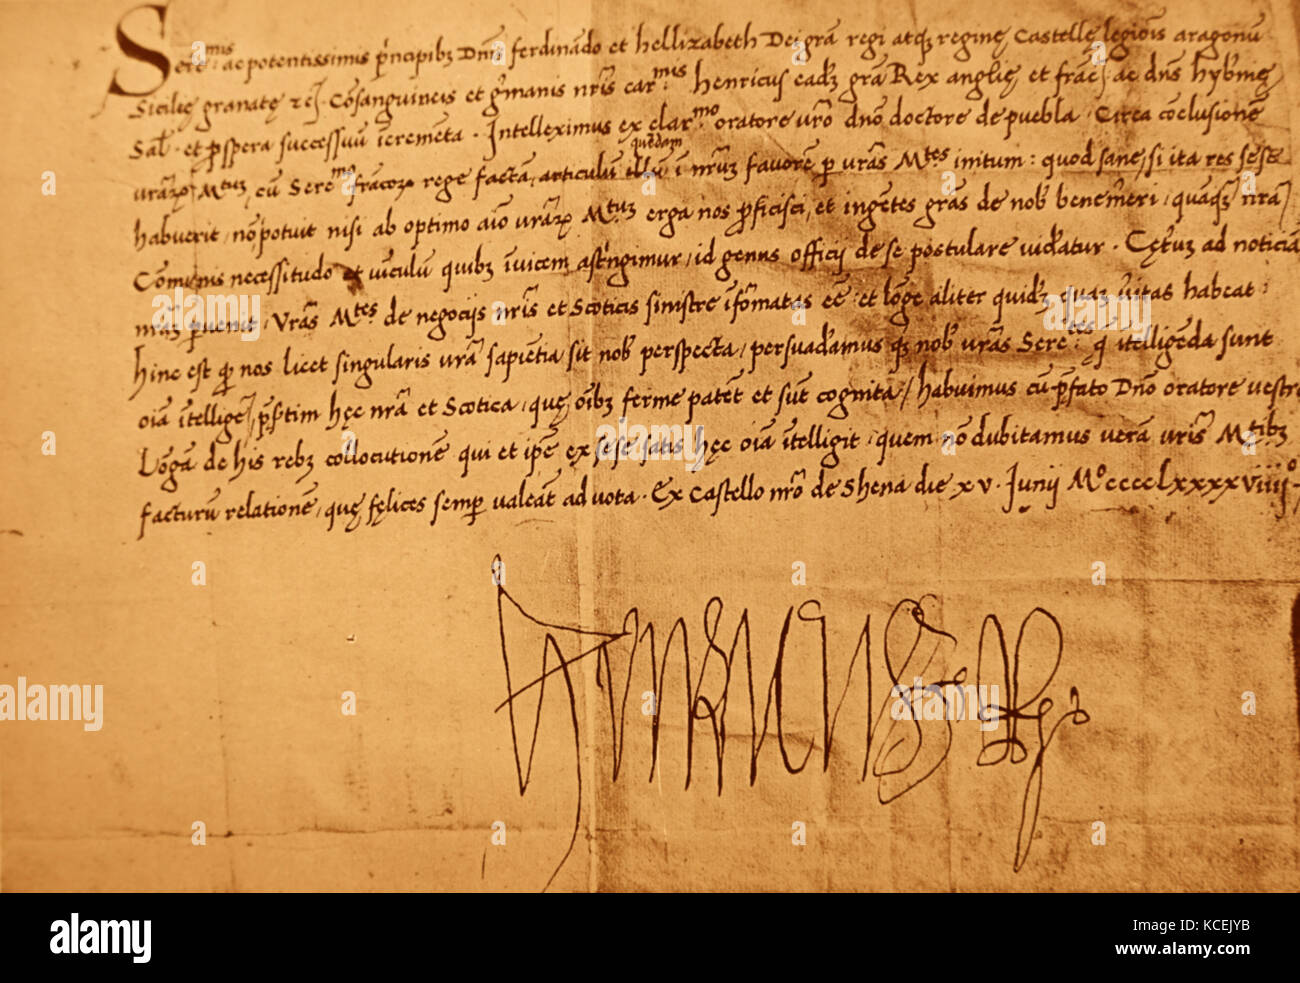 Serᵐⁱˢ ac potentissimis p̃ncipibʒ Dñis ferdinãdo et hellizabeth Dei grã regi atqʒ reginę Castellę legiõis aragonũ
Sicilię granatę zcʒ. Cõsanguineis et gʾmanis nr̃is carᵐⁱˢ henricus eadʒ grã Rex anglię et frãcʒ ac dñs hybʾnię
Sal̃. et pʾspera successuũ icremẽta. Intelleximus ex clarᵐᵒ oratore vr̃o dño doctore de puebla. Circa cõclusionẽ
vr̃arʒ Mᵗᵘʒ cũ Serᵐᵒ frãcorʒ rege factã, articulũ quẽdam ĩ nr̃uʒ favorẽ p vr̃as Mᵗᵉˢ initum: quod sane, si ita res sese
habuerit, nõ potuit nisi ab optimo aĩo vr̃arʒ Mᵗᵘʒ erga nos pʾficisci, et ingẽtes grãs de nob̃ benemʾeri, quãqʒ nr̃a
Cõmunis necessitudo et vĩculũ quibʒ ĩvicem astʾngimur, id genus officij de se postulare vidʾatur. Cętʾuʒ ad noticiã
nr̃aʒ pʾvenit, vr̃as Mᵗᵉˢ de negocijs nr̃is et Scoticis sinistre ĩfoʾmatas eẽ. et lõge aliter quidʒ quaʒ vʾitas habeat:
hinc est qʾ nos licet singularis vr̃a sapiẽtia sit nob̃ perspecta, persuadʾamus qʒ nob̃ vr̃as Sereᵗᵉˢ qʾ ĩtelligẽda sunt
oĩa ĩtelligeʒ, pʾsʾtim hęc nr̃a et Scotica, quę oĩbʒ ferme patẽt et sũt cognita, habuimus cũ pʾfato Dño oratore vestro
Lõgã de his rebʒ collocutionẽ qui et ipẽ ex sese satis hęc oĩa ĩtelligit, quem nõ dubitamus verã vr̃is Mᵗⁱᵇʒ
facturũ relationẽ, quę fęlices sempʾ valeãt ad vota. Ex Castello nr̃o de Shena die xv. Junij Mᵒ ccccLxxxxviiijᵒ.
a alamy stock photo
alamy
Image ID: KCEJYB
www.alamy.com